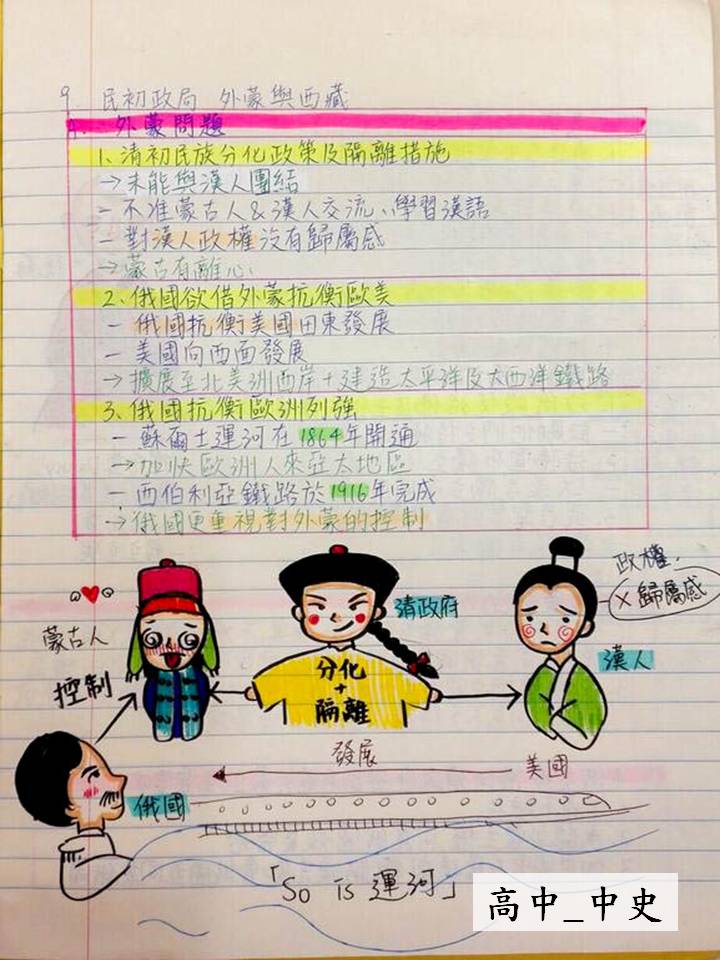 9. 民初政局 外蒙與西藏
A. 外蒙問題
1、清初民族分化政策及隔離措施
→未能與漢人團結
- 不准蒙古人&漢人交流、學習漢語
- 對漢人政權沒有歸屬感
→蒙古有離心
2、俄國欲借外蒙抗衡歐美
- 俄國抗衡美國由東發展
- 美國向西面發展
→擴展至北美洲西岸+建造太平洋及大西洋鐵路
3、俄國抗衡歐洲列強
- 蘇爾士運河在1864年開通
→加快歐洲人來亞太地區
- 西伯利亞鐵路於1916年完成
→俄國更重視對外蒙的控制
政權
×歸屬感
清政府
蒙古人
漢人
分化
+
隔離
控制
發展
美國
俄國
「So is 運河」
高中_中史